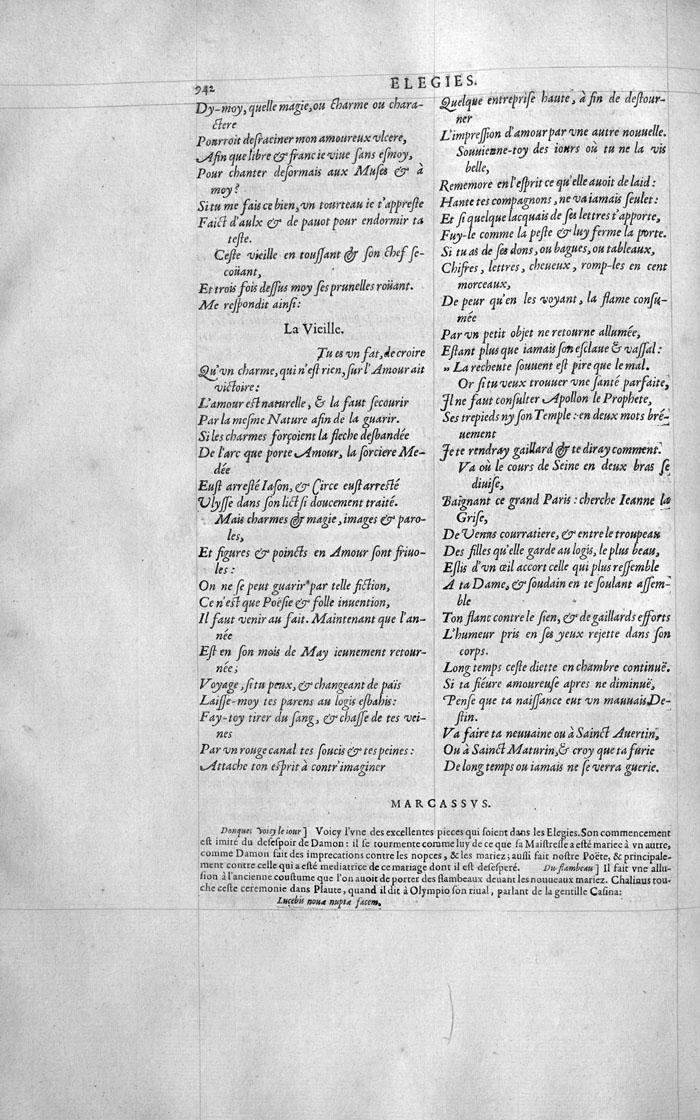 942
ELEGIES.
Dy-moy, quelle magie, ou charme ou chara-
ctere
Pourroit desraciner mon amoureux vlcere,
Afin que libre & franc ie viue sans esmoy,
Pour chanter desormais aux Muses & à
moy?
Si tu me fais ce bien, vn tourteau ie t'appreste
Faict d'aulx & de pauot pour endormir ta
teste.
Ceste vieille en toussant & son chef se-
coüant,
Et trois fois dessus moy ses prunelles roüant.
Me respondit ainsi:
La Vieille.
Tu es vn fat, de croire
Qu'vn charme, qui n'est rien, sur l'Amour ait
victoire:
L'amour est naturelle, & la faut secourir
Par la mesme Nature afin de la guarir.
Si les charmes forçoient la fleche desbandée
De l'arc que porte Amour, la sorciere Me-
dée
Eust arresté Iason, & Circe eust arresté
Vlysse dans son lict si doucement traité.
Mais charmes & magie, images & paro-
les,
Et figures & poincts en Amour sont friuo-
les:
On ne se peut guarir par telle fiction,
Ce n'est que Poësie & folle inuention,
Il faut venir au fait. Maintenant que l'an-
née
Est en son mois de May ieunement retour-
née;
Voyage, si tu peux, & changeant de païs
Laisse-moy tes parens au logis esbahis:
Fay-toy tirer du sang, & chasse de tes vei-
nes
Par vn rouge canal tes soucis & tes peines:
Attache ton esprit à contr'imaginer
Quelque entreprise haute, à fin de destour-
ner
L'impression d'amour par vne autre nouuelle.
Souuienne-toy des iours où tu ne la vis
belle,
Rememore en l'esprit ce qu'elle auoit de laid:
Hante tes compagnons, ne va iamais seulet:
Et si quelque lacquais de ses lettres t'apporte,
Fuy-le comme la peste & luy ferme la porte.
Si tu as de ses dons, ou bagues, ou tableaux,
Chifres, lettres, cheueux, romp-les en cent
morceaux,
De peur qu'en les voyant, la flame consu-
mée
Par vn petit objet ne retourne allumée,
Estant plus que iamais son esclaue & vassal:
» La recheute souuent est pire que le mal.
Or si tu veux trouuer vne santé parfaite,
Il ne faut consulter Apollon le Prophete,
Ses trepieds ny son Temple: en deux mots bré-
uement
Je te rendray gaillard & te diray comment.
Va où le cours de Seine en deux bras se
diuise,
Baignant ce grand Paris: cherche Ieanne la
Grise,
De Venus courratiere, & entre le troupeau
Des filles qu'elle garde au logis, le plus beau,
Eslis d'vn œil accort celle qui plus ressemble
A ta Dame, & soudain en te soulant assem-
ble
Ton flanc contre le sien, & de gaillards efforts
L'humeur pris en ses yeux rejette dans son
corps.
Long temps ceste diette en chambre continuë.
Si ta fiéure amoureuse apres ne diminuë,
Pense que ta naissance eut vn mauuais De-
stin.
Va faire ta neuuaine ou à Sainct Auertin,
Ou à Sainct Maturin, & croy que ta furie
De long temps ou iamais ne se verra guerie.
MARCASSVS.
Donques voicy le iour] Voicy l'vne des excellentes pieces qui soient dans les Elegies. Son commencement
est imité du desespoir de Damon: il se tourmente comme luy de ce que sa Maistresse a esté mariee à vn autre,
comme Damon fait des imprecations contre les nopces, & les mariez; aussi fait nostre Poëte, & principale-
ment contre celle qui a esté mediatrice de ce mariage dont il est desesperé. Du flambeau] Il fait vne allu-
sion à l'ancienne coustume que l'on auoit de porter des flambeaux deuant les nouueaux mariez. Chalinus tou-
che ceste ceremonie dans Plaute, quand il dit à Olympio son riual, parlant de la gentille Casina:
Lucebis nouæ nuptæ facem.